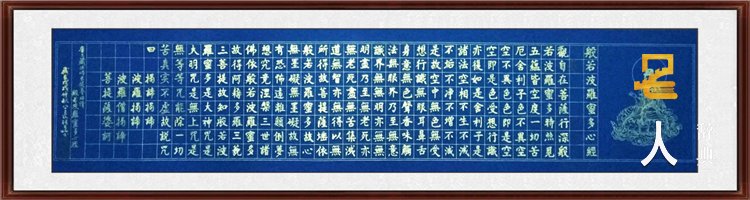 般若波羅蜜多心經
觀自在菩薩行深般
若波羅蜜多時照見
五蘊皆空度一切苦
厄舍利子色不異空
空不異色色即是空
空即是色受想行識
亦復如是舍利子是
諸法空相不生不滅
不垢不淨不增不減
是故空中無色無受
想行識無眼耳鼻舌
身意無色聲香味觸
法無眼界乃至無意
識界無無明亦無無
明盡乃至無老死亦
無老死盡無苦集滅
道無智亦無得以無
所得故菩提薩埵依
般若波羅蜜多故心
無罣礙無罣礙故無
有恐怖遠離顛倒夢
想究竟涅槃三世諸
佛依般若波羅蜜多
故得阿耨多羅三藐
三菩提故知般若波
羅蜜多是大神咒是
大明咒是無上咒是
無等等咒能除一切
苦真實不虛故說咒
曰 揭諦揭諦
波羅揭諦
波羅僧揭諦
菩提薩婆訶
人